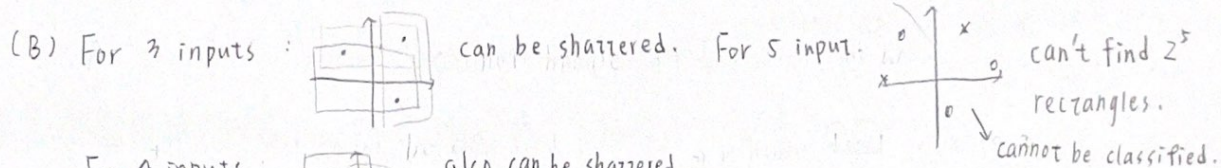 (B) For 3 inputs : can be shattered. For 5 input. can't find 2^5
rectangles.
cannot be classified.
For 4 inputs also can be shattered